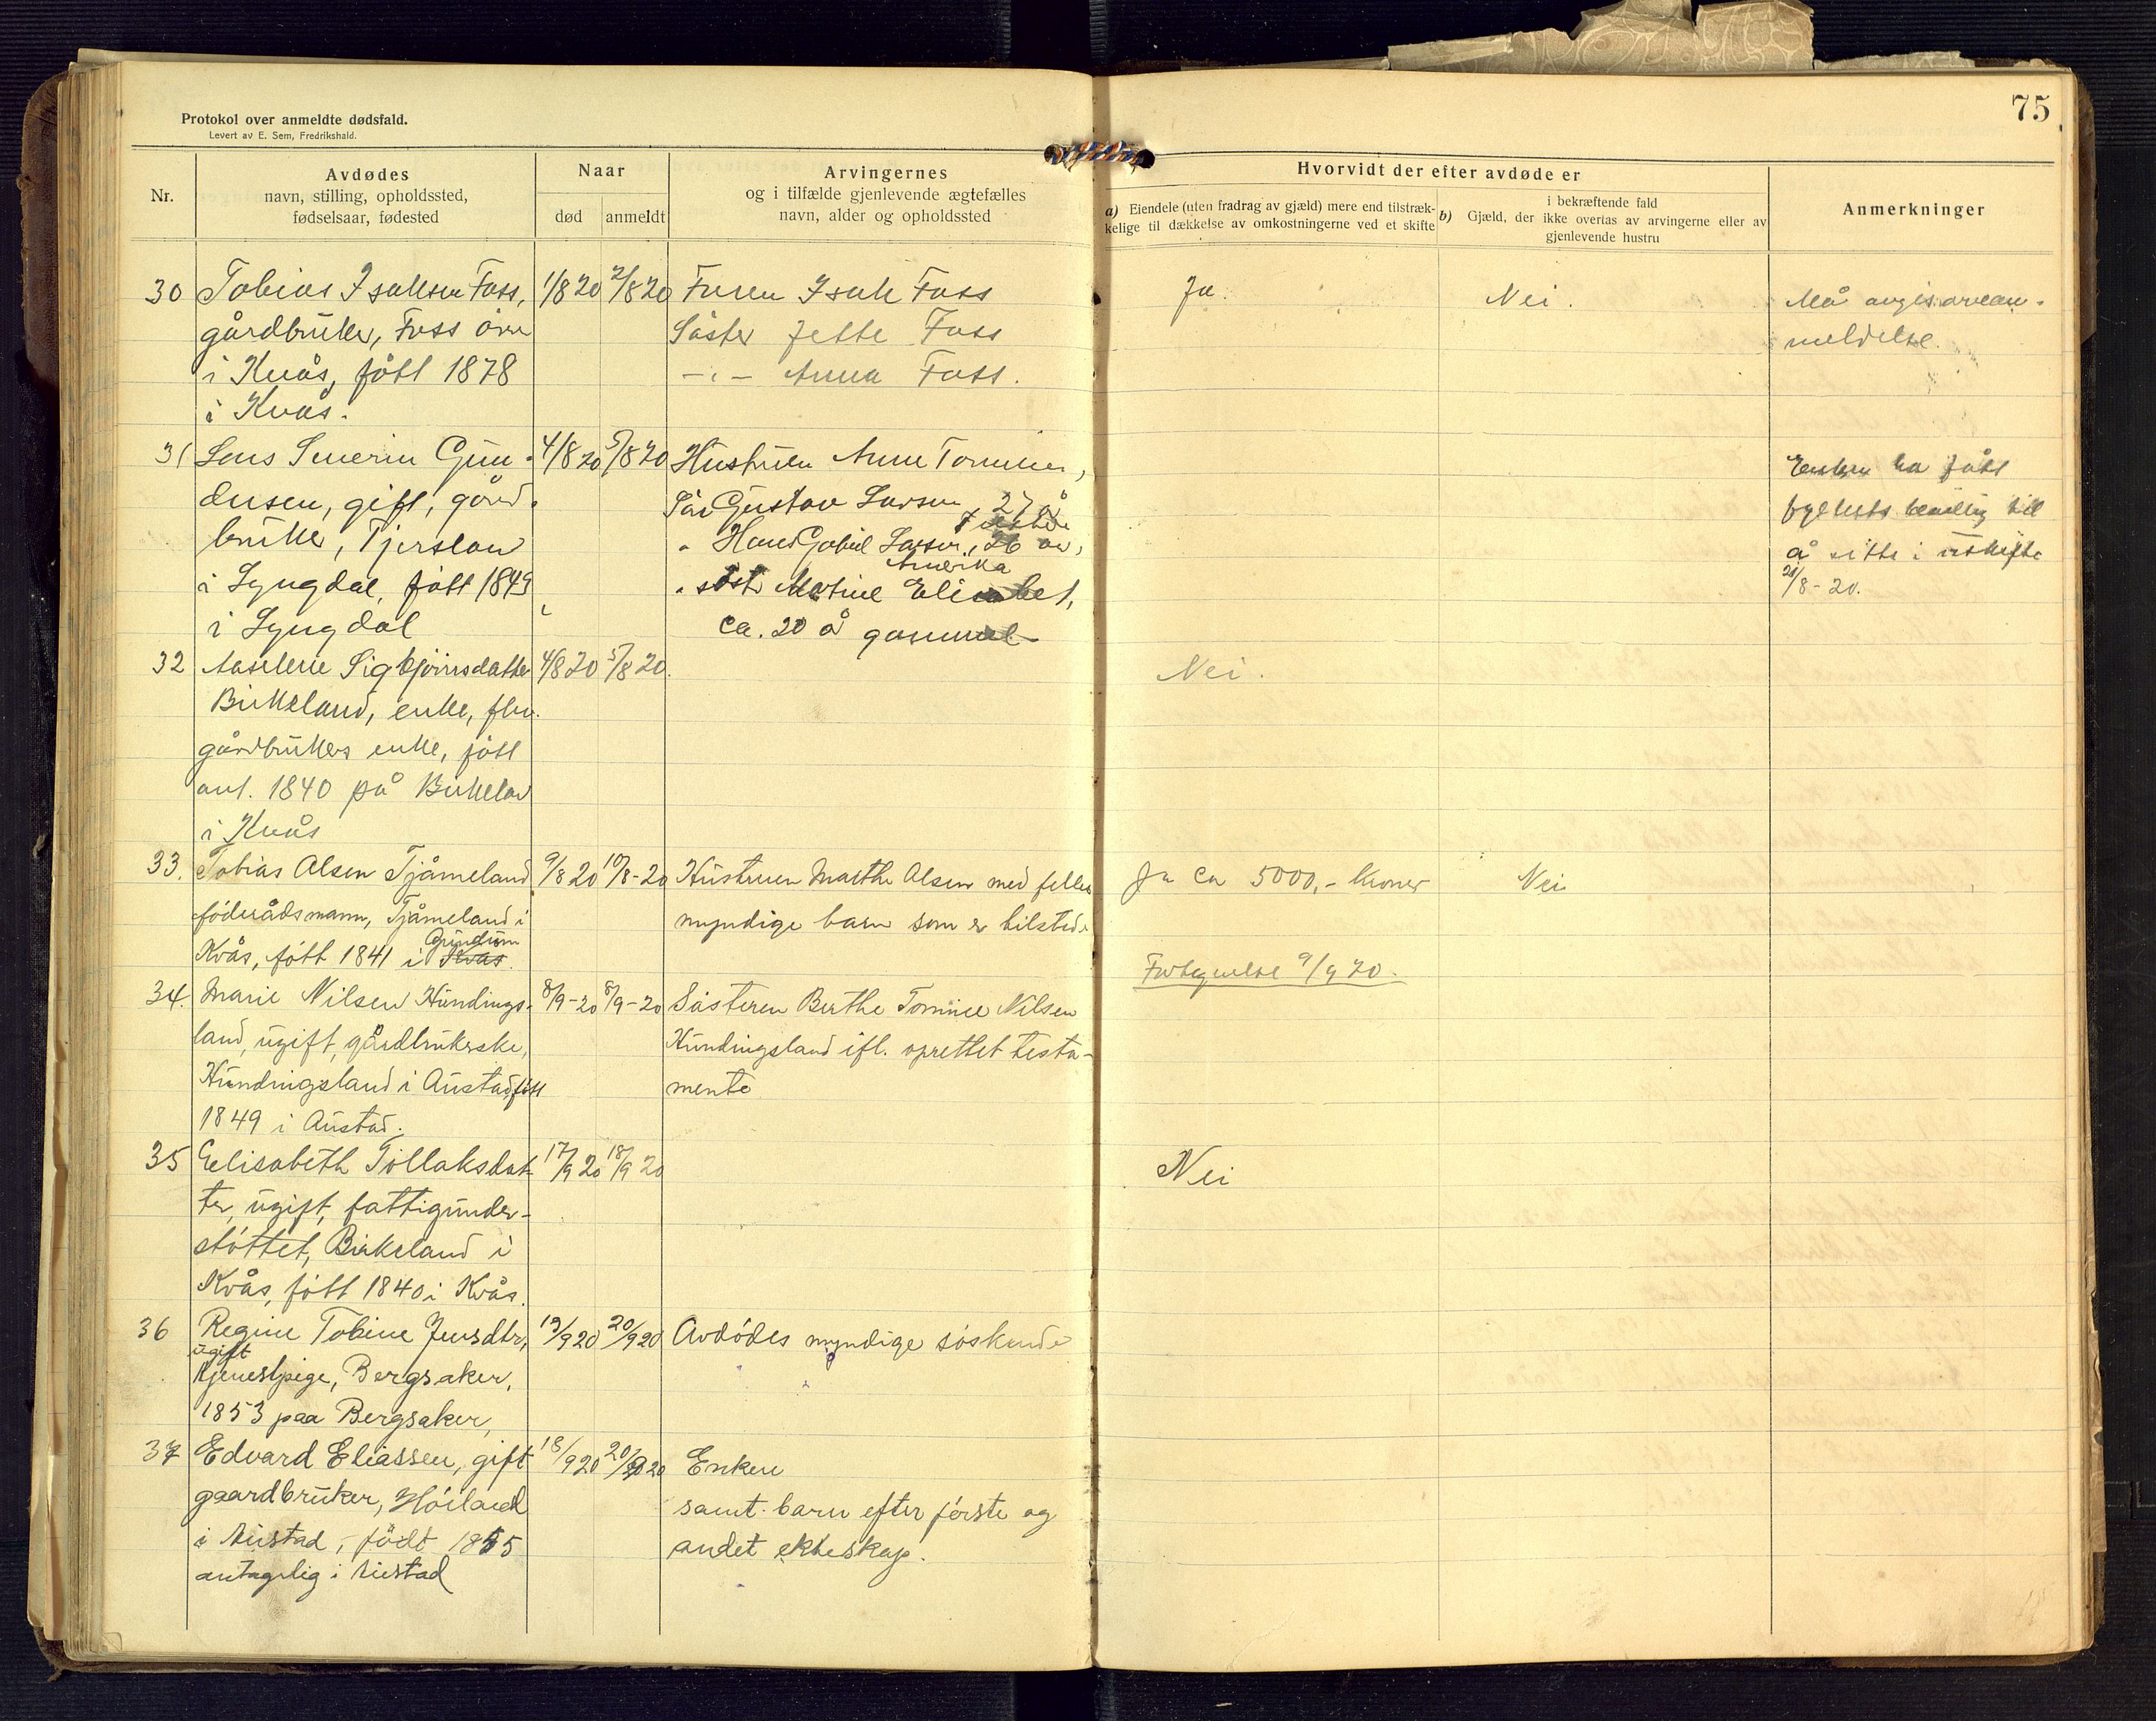 75
Protokol over anmeldte dødsfald.
Levert av E. Sem, Fredrikshald.
Nr.
Avdødes
navn, stilling, opholdssted,
fødselsaar, fødested
Naar
død anmeldt
Arvingernes
og i tilfælde gjenlevende ægtefælles
navn, alder og opholdssted
Hvorvidt der efter avdøde er
a) Eiendele (uten fradrag av gjæld) mere end tilstræk-
kelige til dækkelse av omkostningerne ved et skifte
b) Gjæld, der i bekræftende fald
ikke overtas av arvingerne eller av
gjenlevende hustru
Anmerkninger
30 Tobias Isaksen Foss, 1/8 20 2/8 20 Faren Isak Foss Ja. Nei.
gårdbruker, Foss øvre Søster Jette Foss
i Kvås, født 1878 -"- Anna Foss.
i Kvås.
Må angis
meldelse.
31 Severin Gun- 4/8 20 5/8 20 Hustruen Anne
dersen, gift, gård-
bruker,
i Lyngdal, født 1849
i Lyngdal
Gustav Larsen 27 å
Larsen, 26 år,
Amerika
Martine
ca. 20 å gammel
Enken ha fått
fylkets bevilling til
å sitte i uskifte
21/8-20.
32 Sigbjørnsdatter 4/8 20 5/8 20. Nei.
Birkeland, enke, fhv.
gårdbrukers enke, født
ant. 1840 på Birkeland
i Kvås
33. Tobias Olsen Tjåmeland 9/8 20 10/8-20 Hustruen Marthe Olsen med felles Ja ca 5000,- kroner Nei
föderådsmann, Tjåmeland i myndige barn som er tilstede
Kvås, fött 1841 i Kvås.
Grindum
Fortegnelse 9/9 20.
34. Marie Nilsen Hundings- 8/9-20 8/9-20 Søsteren Berthe Tomine Nilsen
land, ugift, gårdbrukerske, Hundingsland ifl. oprettet testa-
Hundingsland i Austad, fött mente
1849 i Austad.
35 Elisabeth Tollaksdat- 17/9 20 18/9 20 Nei
ter, ugift, fattigunder-
støttet, Birkeland i
Kvås, fött 1840 i Kvås.
36 Regine Tobine Jensdtr, 19/9 20 20/9 20 Avdødes myndige søskende
ugift
tjenestpige, Bergsaker,
1853 paa Bergsaker,
37 Edvard Eliassen, gift 18/9 20 20/9 20 Enken
gaardbruker, Høiland samt barn efter første og
i Austad, født 1855 andet ekteskap.
antagelig i Austad